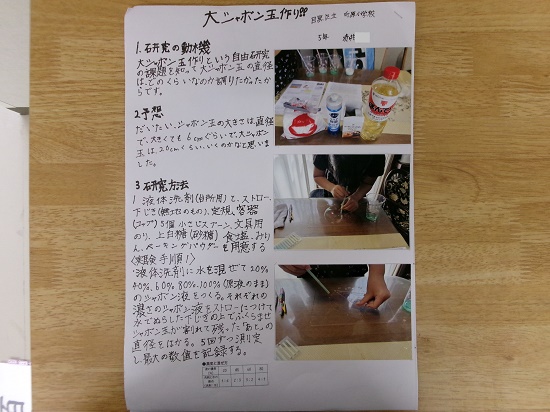 大シャボン玉作り!!
5年
1.研究の動機
大シャボン玉作りという自由研究
の課題を知って大シャボン玉の直径
はどのくらいなのか調りたかったか
らです。
2予想
だいたい、シャボン玉の大きさは直径
で、大きくても6cmぐらいで、大シャボン
玉は、20cmくらい、いくのかなと思いま
した。
3研究方法
1液体洗剤(台所用)と、ストロー、
下じき(無地のもの)、定規、容器
(コップ)5個小さじスプーン、文具用
のり、上白糖(砂糖)食塩、みりん、
ベーキングパウダーを用意する
〈実験手順!〉
・液体洗剤に水を混ぜて20%
40%、60%80%、100%(原液のまま)
のシャボン液をつくる。それぞれの
濃さのシャボン液をストローにつけて
水でぬらした下じきの上でふくらませ
シャボン玉が割れて残った「あと」の
直径をはかる。5回ずつ測り定
し最大の数値を記録する。